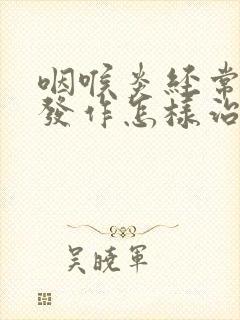 咽喉炎経常
發作怎樣治
吴曉軍